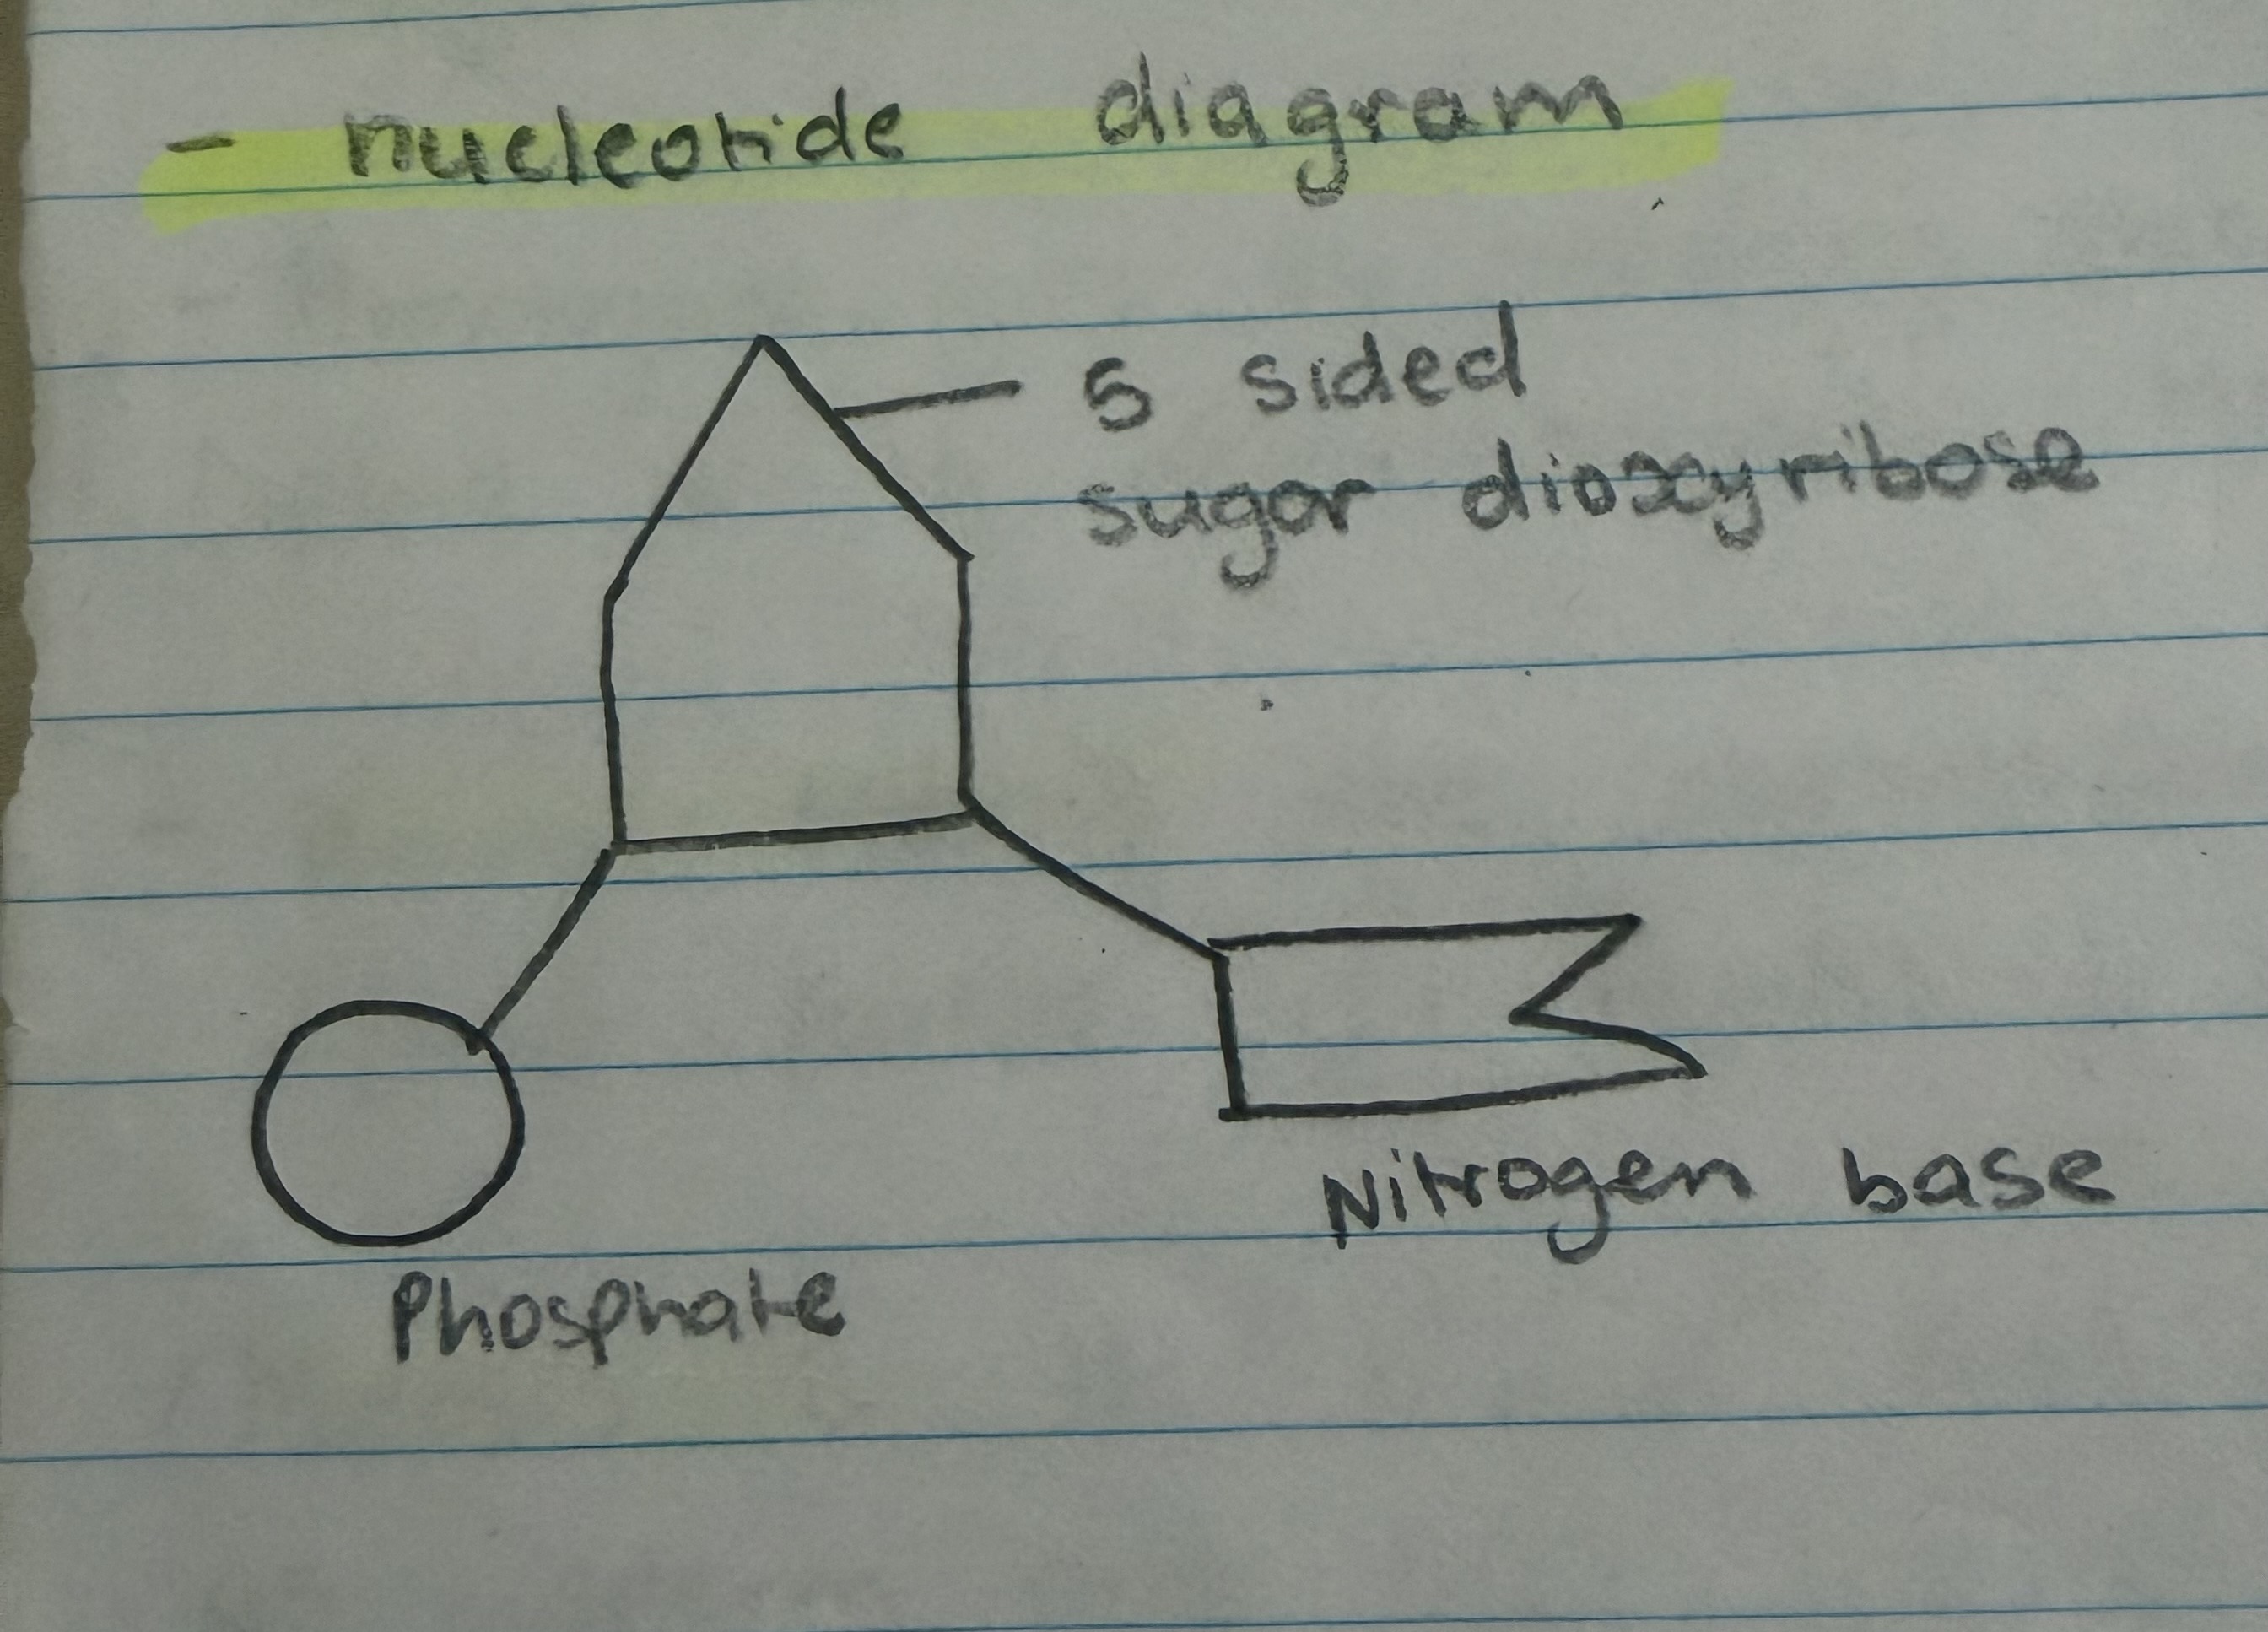 - nucleotide diagram
5 sided
sugar dioxyribose
Nitrogen base
Phosphate